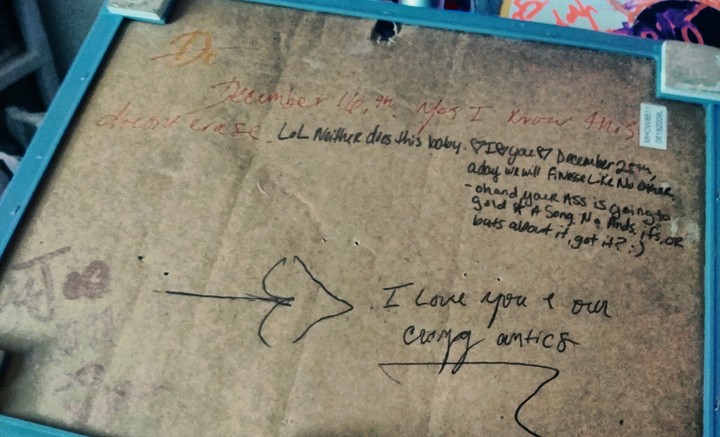 December 16,th. Yes I know this
doesnt erase. LoL Neither does this baby. ♡I♡you♡ December 28th,
a day we will Finesse Like No other.
-oh and your ASS is going to
gold A Song. No Ands, ifs, OR
buts about it, got it? :)
I Love you & our
crazy antics
MHOW8B11